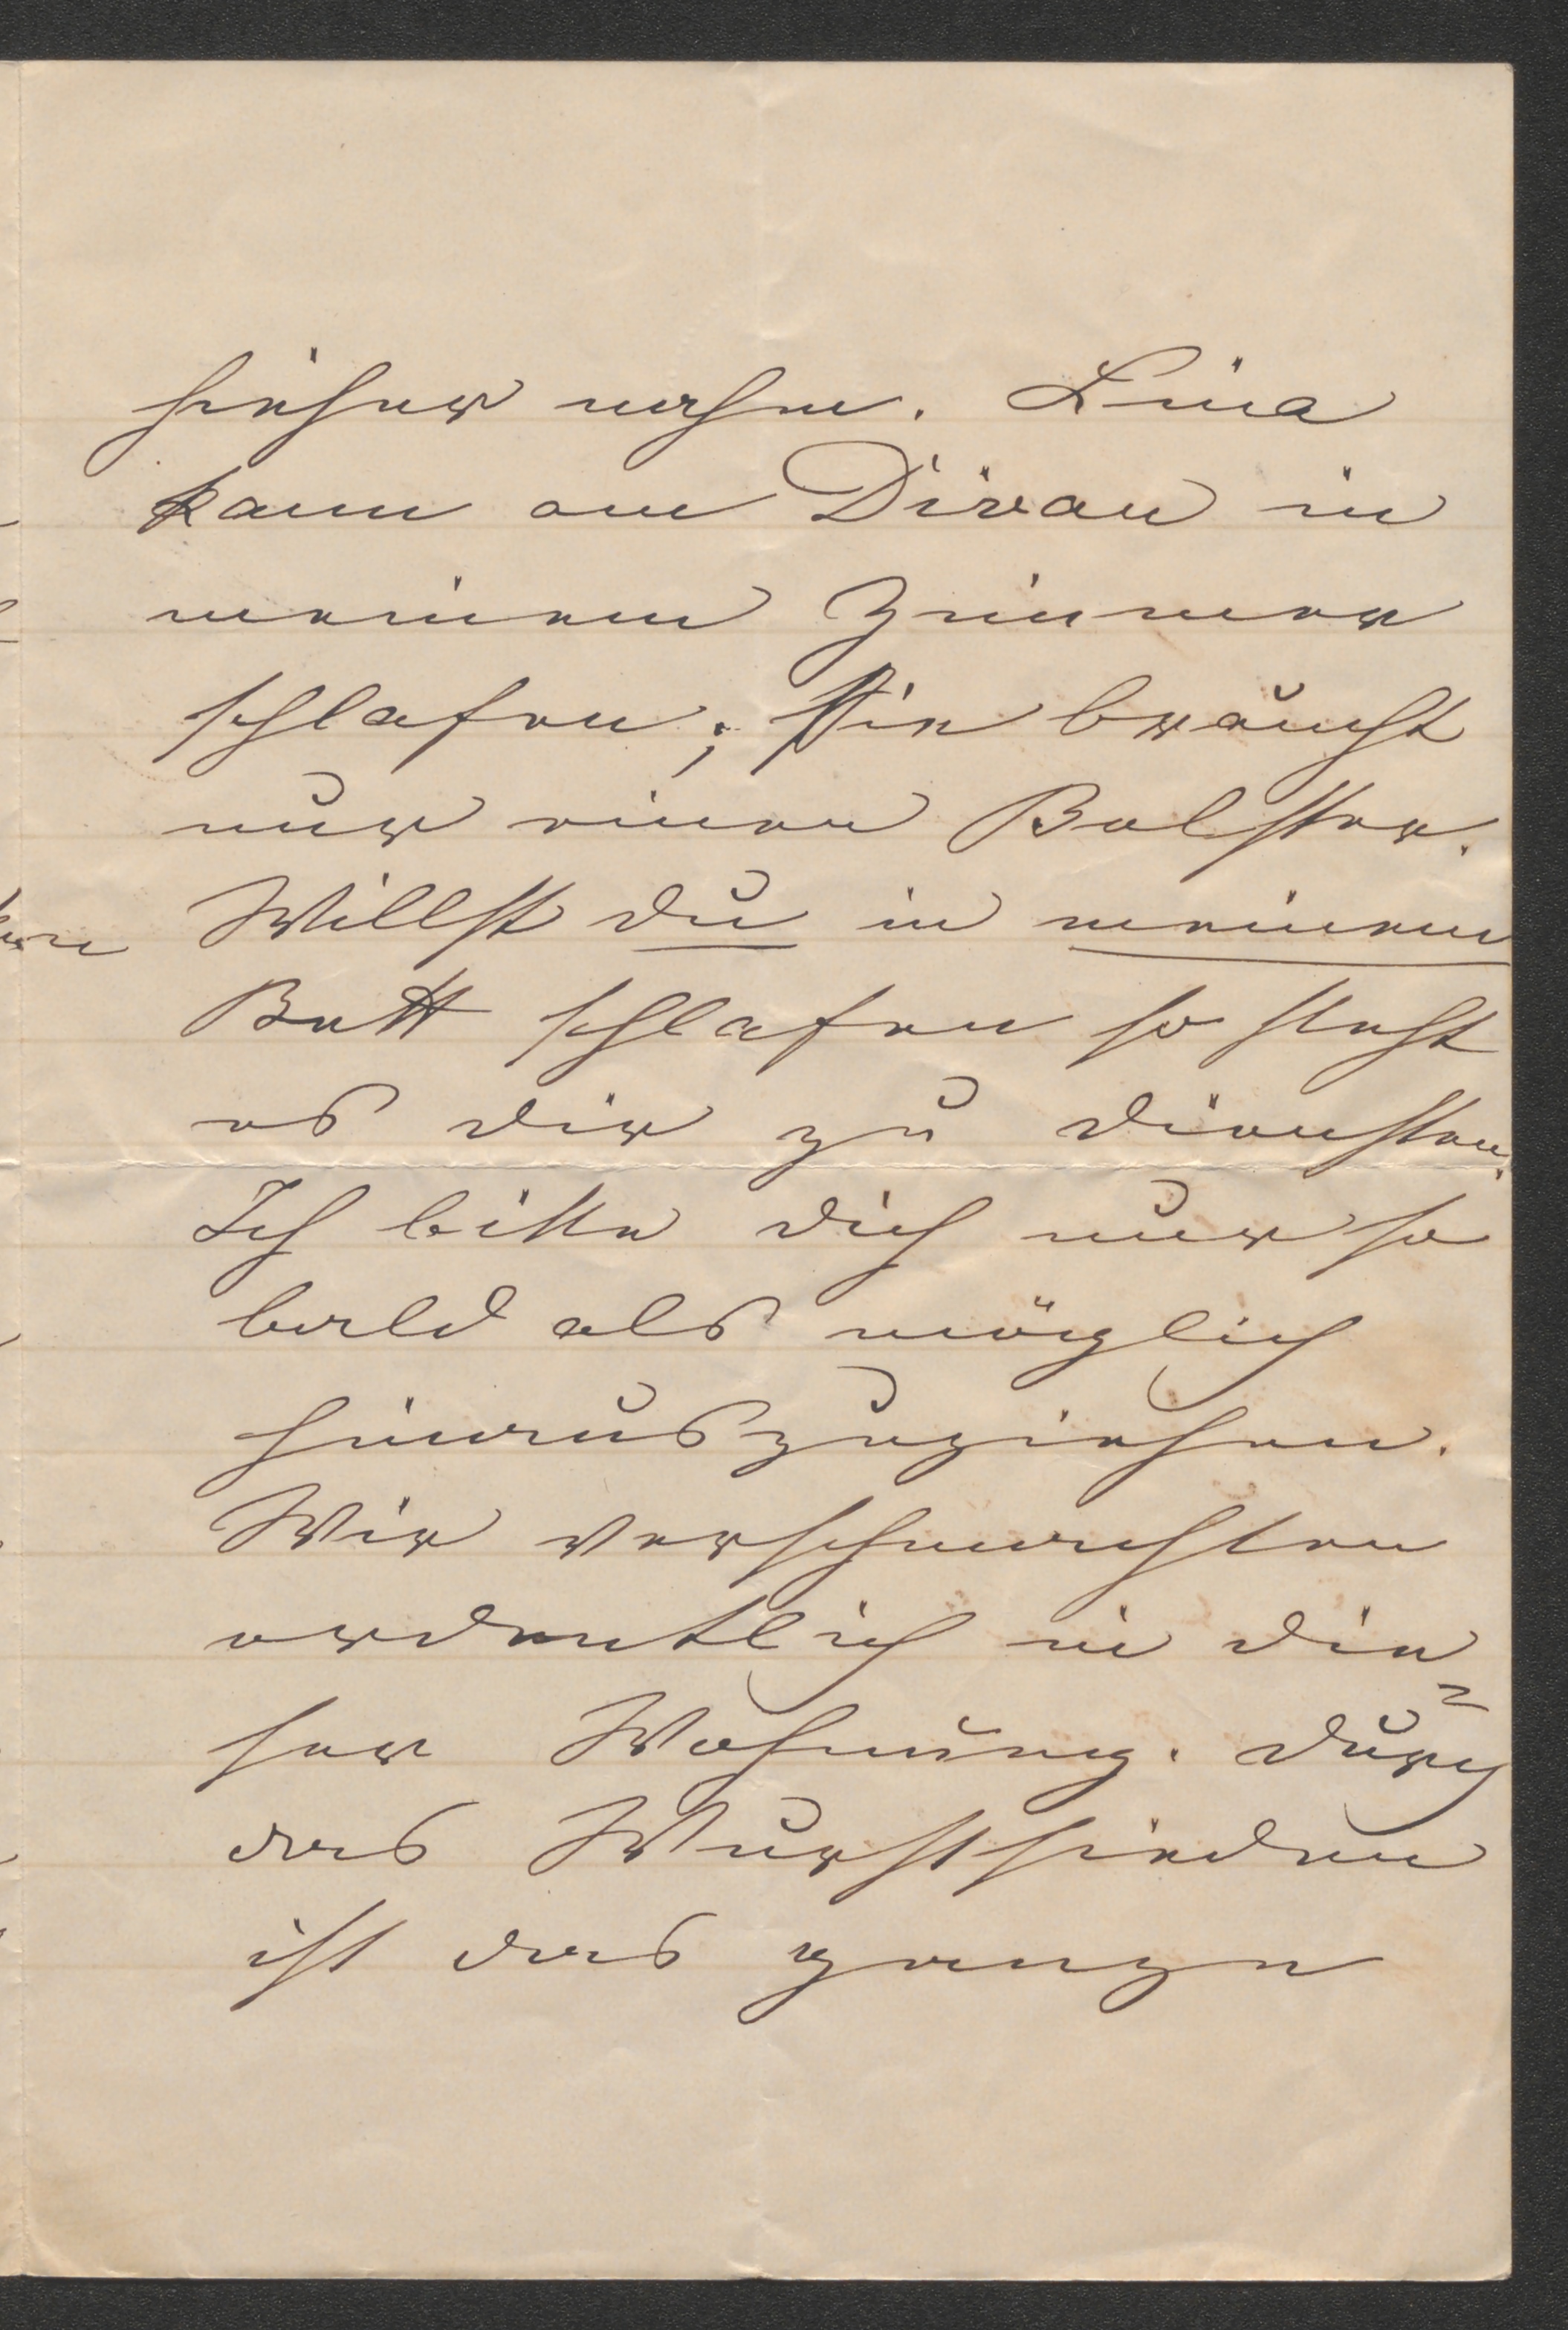 hieher nahm. Lina
kann am Divan in
meinem Zimmer
schlafen; Sie braucht
nur einen Bolster.
Willst du in meinem
Bett schlafen so steht
es dir zu diensten.
Ich bitte dich nur so
bald als möglich
hinauszuziehen.
Wir verschmachten
ordentlich in die=
ser Wohnung. durch
das Wurstsieden
ist das ganze